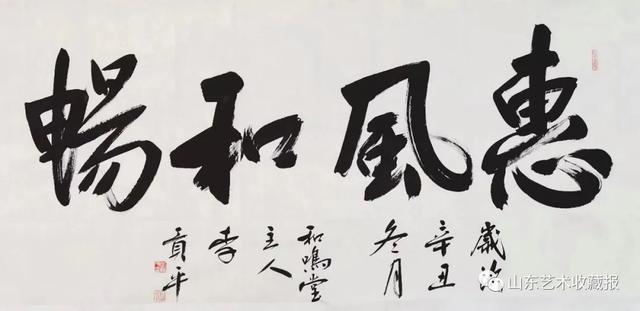 惠風和暢
歲次
辛丑
冬月
和鳴堂
主人
李
貢平
山东艺术收藏报